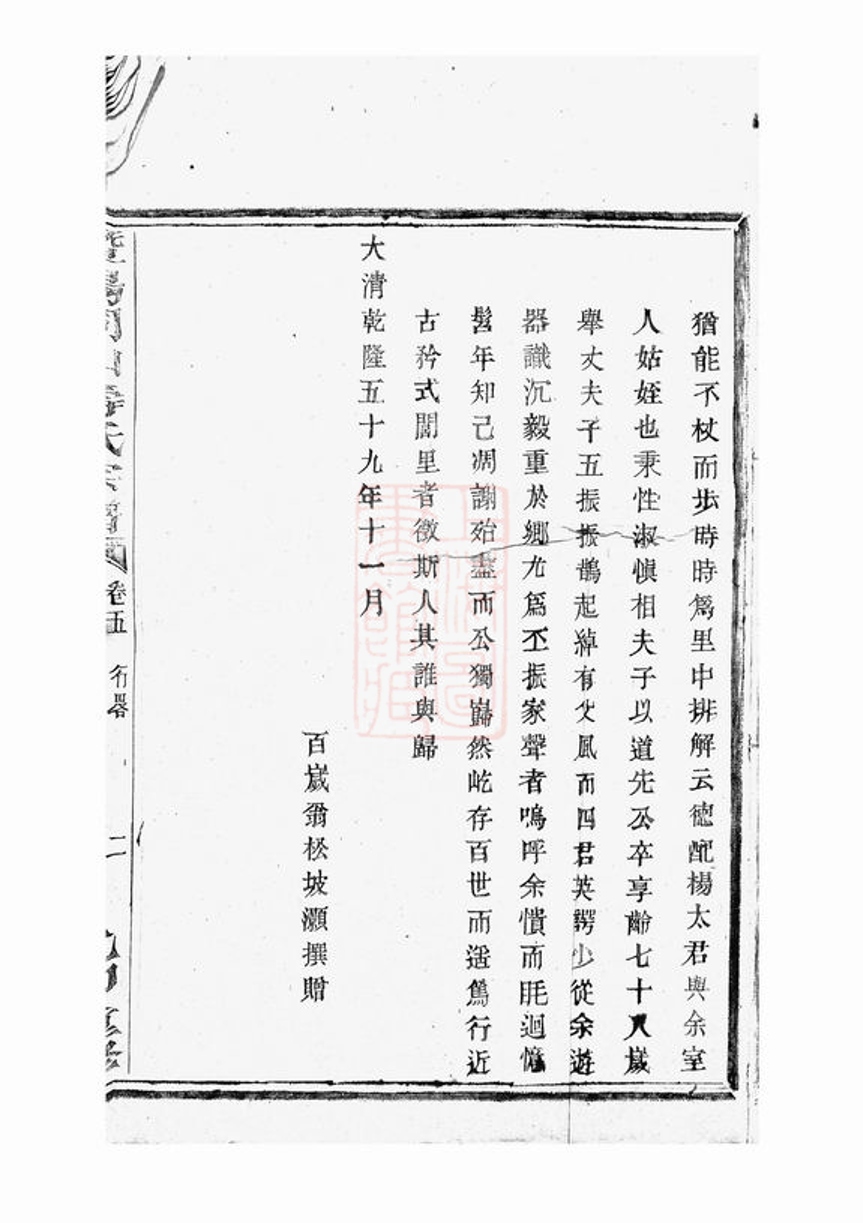 猶能不杖而步時時爲里中排解云德配楊太君與余室
人姑姪也秉性淑愼相夫子以道先公卒享齡七十八歲
舉丈夫子五振振鵲起綽有父風而四君英諤少從余遊
器識沉毅重於鄉尤爲丕振家聲者嗚呼余憒而眊迴憶
髫年知己凋謝殆盡而公獨巋然屹存百世而遥篤行近
古矜式閭里者微斯人其誰與歸
大清乾隆五十九年十一月
百歲翁松坡灝撰贈
暨陽同山壽氏宗譜 卷五 行畧 二
上海圖書館藏